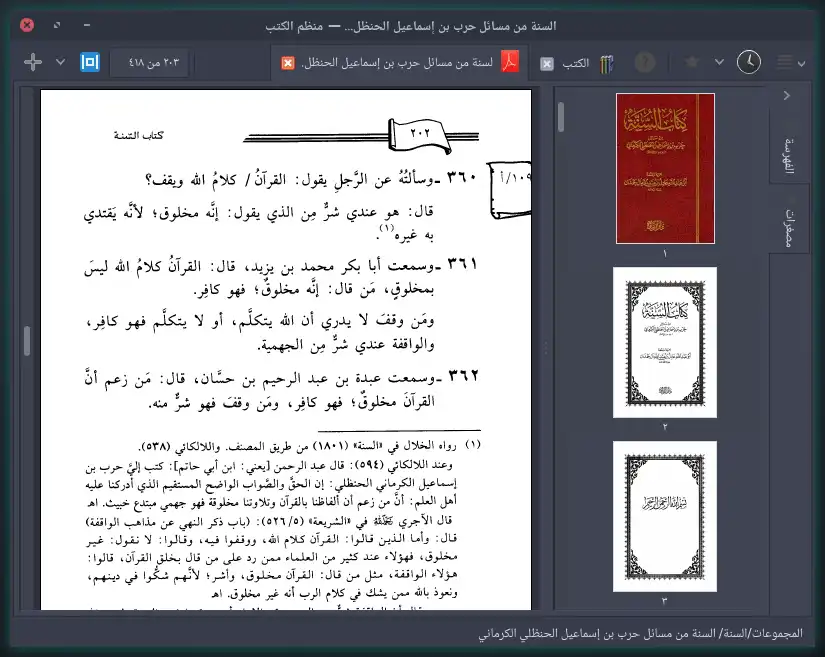 السنة من مسائل حرب بن إسماعيل الحنظل... — منظم الكتب
الكتب
لسنة من مسائل حرب بن إسماعيل الحنظل.
٢٠٣ من ٤١٨
٢٠٢
كتاب السّنة
١٠٩/أ
٣٦٠ ـ وسألتُهُ عن الرَّجلِ يقول: القرآنُ / كلامُ الله ويقف؟
قال: هو عندي شرٌّ مِن الذي يقول: إنَّه مخلوق؛ لأنَّه يَقتدي
به غيره(١).
٣٦١ ـ وسمعت أبا بكر محمد بن يزيد، قال: القرآنُ كلامُ الله ليسَ
بمخلوقٍ، مَن قال: إنَّه مخلوقٌ؛ فهو كافِر.
ومَن وقفَ لا يدري أن الله يتكلَّم، أو لا يتكلَّم فهو كافِر،
والواقفة عندي شرٌّ مِن الجهمية.
٣٦٢ ـ وسمعت عبدة بن عبد الرحيم بن حسَّان، قال: مَن زعم أنَّ
القرآنَ مخلوقٌ؛ فهو كافِر، ومَن وقفَ فهو شرٌّ منه.
(١) رواه الخلال في «السنة» (١٨٠١) من طريق المصنف. واللالكائي (٥٣٨).
وعند اللالكائي (٥٩٤): قال عبد الرحمن [يعني: ابن أبي حاتم]: كتب إليَّ حرب بن
إسماعيل الكرماني الحنظلي: إن الحقَّ والصَّواب الواضح المستقيم الذي أدركنا عليه
أهل العلم: أنَّ من زعم أن ألفاظنا بالقرآن وتلاوتنا مخلوقة فهو جهمي مبتدع خبيث. اهـ
قال الآجري رَحِمَهُ اللهُ في «الشريعة» (٥٢٦/٥): (باب ذكر النهي عن مذاهب الواقفة)
قال: وأما الذين قالوا: القرآن كلام الله، ووقفوا فيه، وقالوا: لا نقول: غير
مخلوق، فهؤلاء عند كثير من العلماء ممن رد على من قال بخلق القرآن، قالوا:
هؤلاء الواقفة، مثل من قال: القرآن مخلوق، وأشر؛ لأنَّهم شكُّوا في دينهم،
ونعوذ بالله ممن يشك في كلام الرب أنه غير مخلوق. اهـ
كتاب السنة
١
كتاب السنة
٢
بسم الله الرحمن الرحيم
٣
الفهرسة
مصغرات
المجموعات/السنة/ السنة من مسائل حرب بن إسماعيل الحنظلي الكرماني